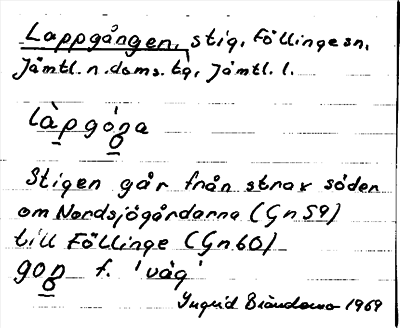 Lappgången, stig, Föllinge sn,
Jämtl. n. doms. tg, Jämtl. l.
làpgóŋa
Stigen går från strax söder
om Nordsjögårdarna (Gn 59)
till Föllinge (Gn 60)
goŋ f. 'väg'
Ingrid 1969